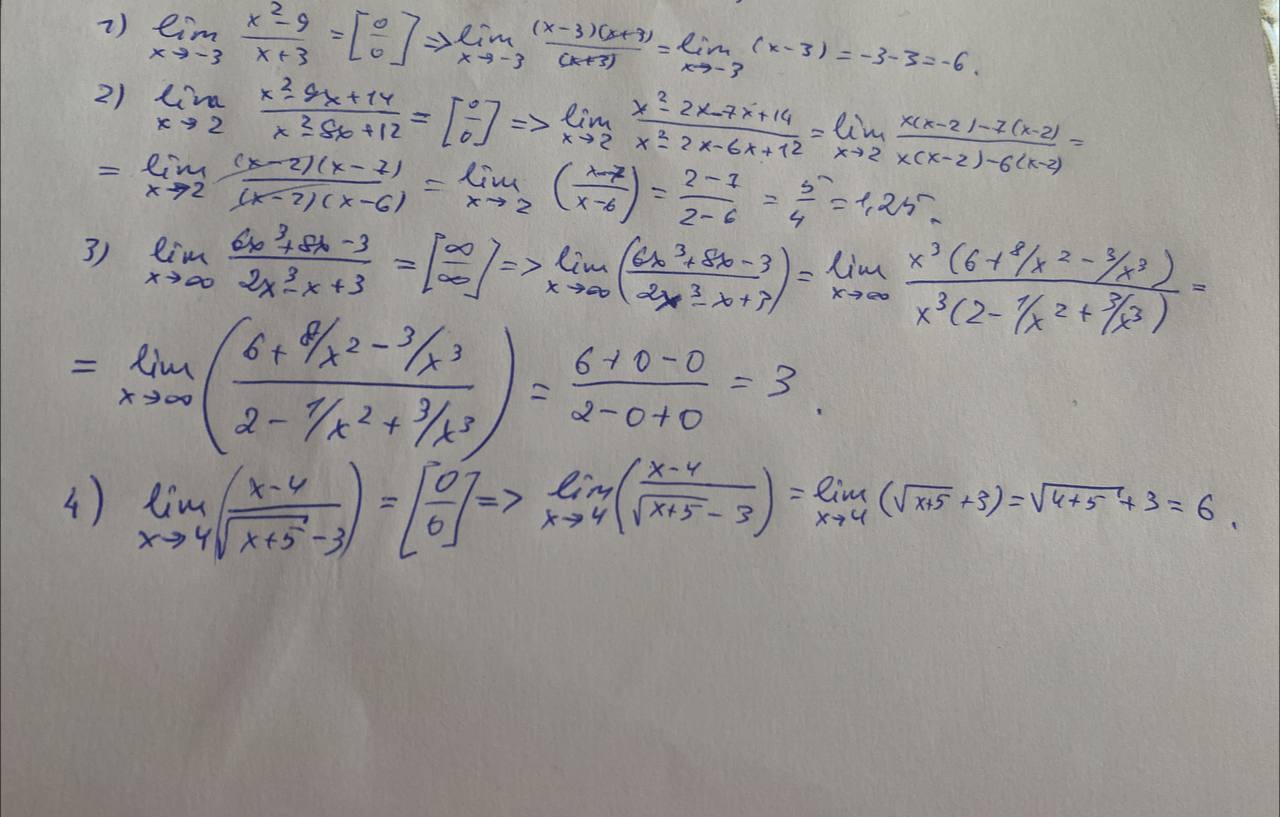 1) lim x→-3 (x²-9)/(x+3) = [0/0] => lim x→-3 (x-3)(x+3)/(x+3) = lim x→-3 (x-3) = -3-3 = -6.
2) lim x→2 (x²-9x+14)/(x²-8x+12) = [0/0] => lim x→2 (x²-2x-7x+14)/(x²-2x-6x+12) = lim x→2 (x(x-2)-7(x-2))/(x(x-2)-6(x-2)) =
= lim x→2 (x-2)(x-7)/(x-2)(x-6) = lim x→2 ((x-7)/(x-6)) = (2-7)/(2-6) = 5/4 = 1,25.
3) lim x→∞ (6x³+8x-3)/(2x³-x+3) = [∞/∞] => lim x→∞ ((6x³+8x-3)/(2x³-x+3)) = lim x→∞ x³(6+8/x²-3/x³)/x³(2-1/x²+3/x³) =
= lim x→∞ ((6+8/x²-3/x³)/(2-1/x²+3/x³)) = (6+0-0)/(2-0+0) = 3.
4) lim x→4 ((x-4)/(√(x+5)-3)) = [0/0] => lim x→4 ((x-4)/(√(x+5)-3)) = lim x→4 (√(x+5)+3) = √(4+5)+3 = 6.